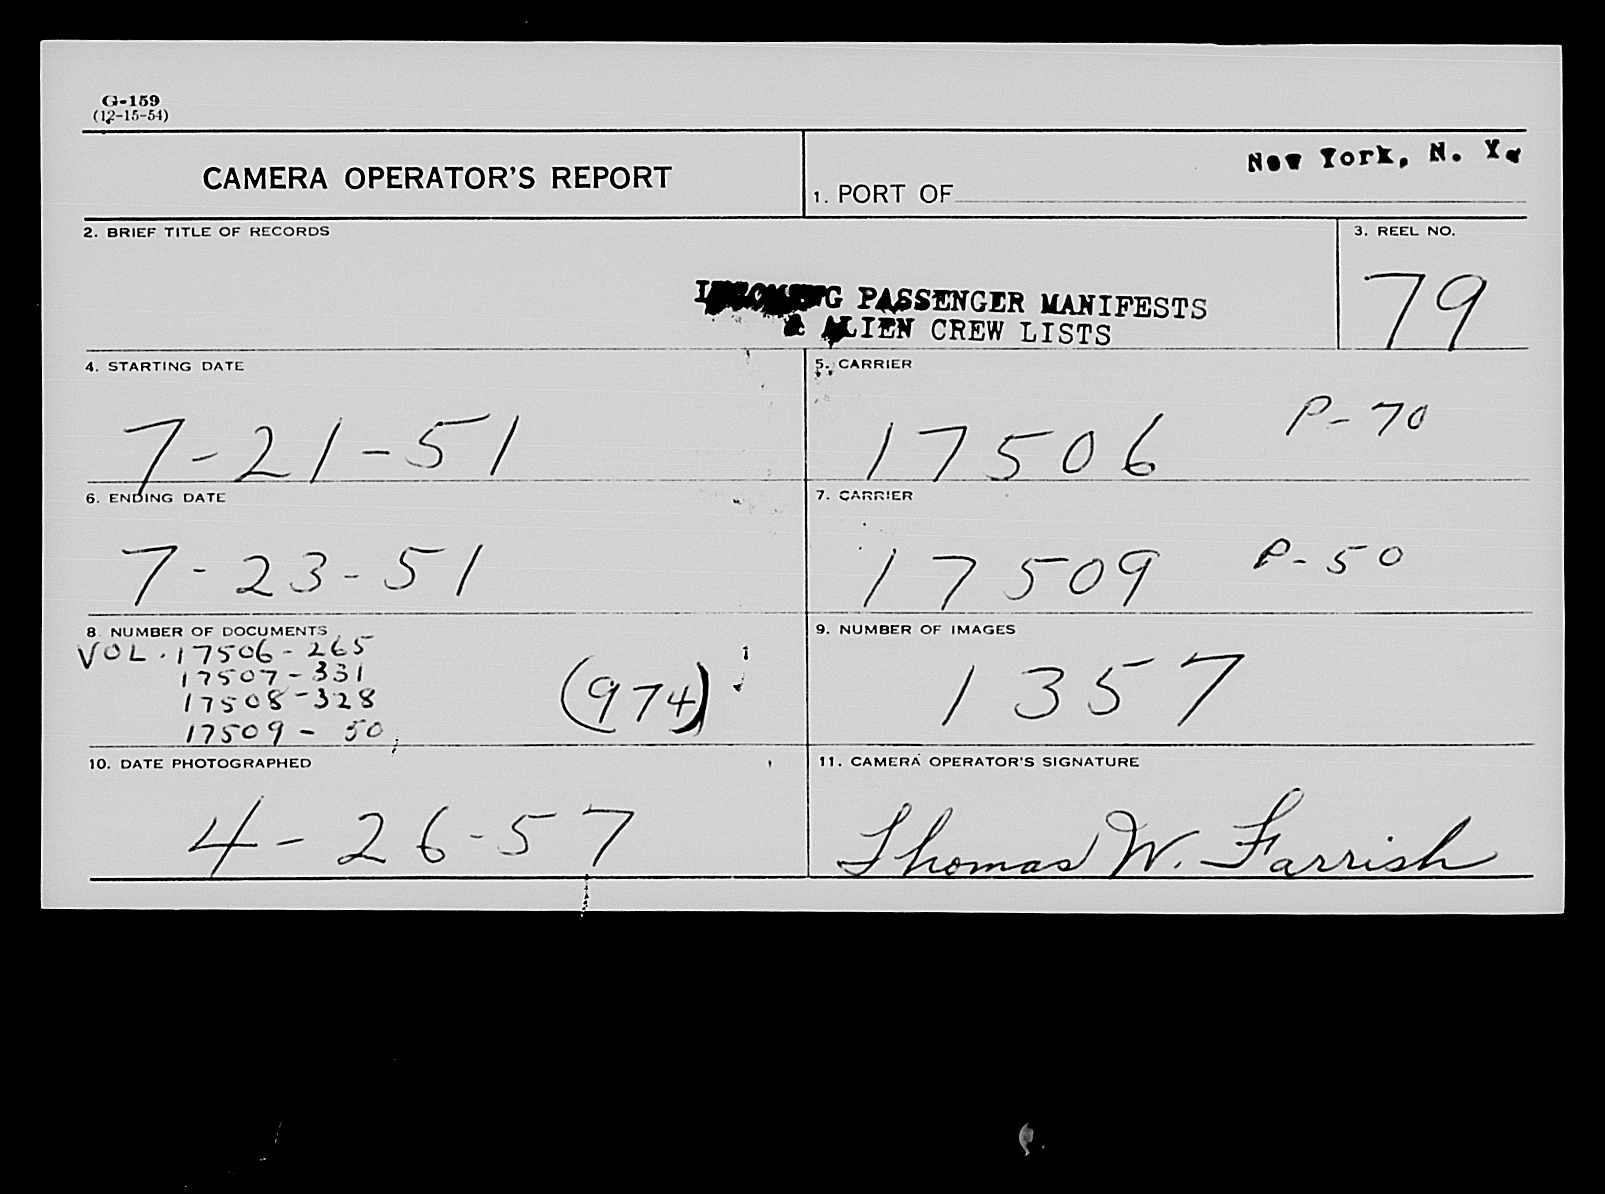 G-159
(12-15-54)
CAMERA OPERATOR'S REPORT
1. PORT OF New York, N. Y.
2. BRIEF TITLE OF RECORDS
3. REEL NO.
PASSENGER MANIFESTS
& ALIEN CREW LISTS
79
4. STARTING DATE
7-21-51
5. CARRIER
17506 P-70
6. ENDING DATE
7-23-51
7. CARRIER
17509 P-50
8. NUMBER OF DOCUMENTS
VOL. 17506-265
17507-331
17508-328
17509- 50
(974)
9. NUMBER OF IMAGES
1357
10. DATE PHOTOGRAPHED
4-26-57
11. CAMERA OPERATOR'S SIGNATURE
Thomas W. Farrish